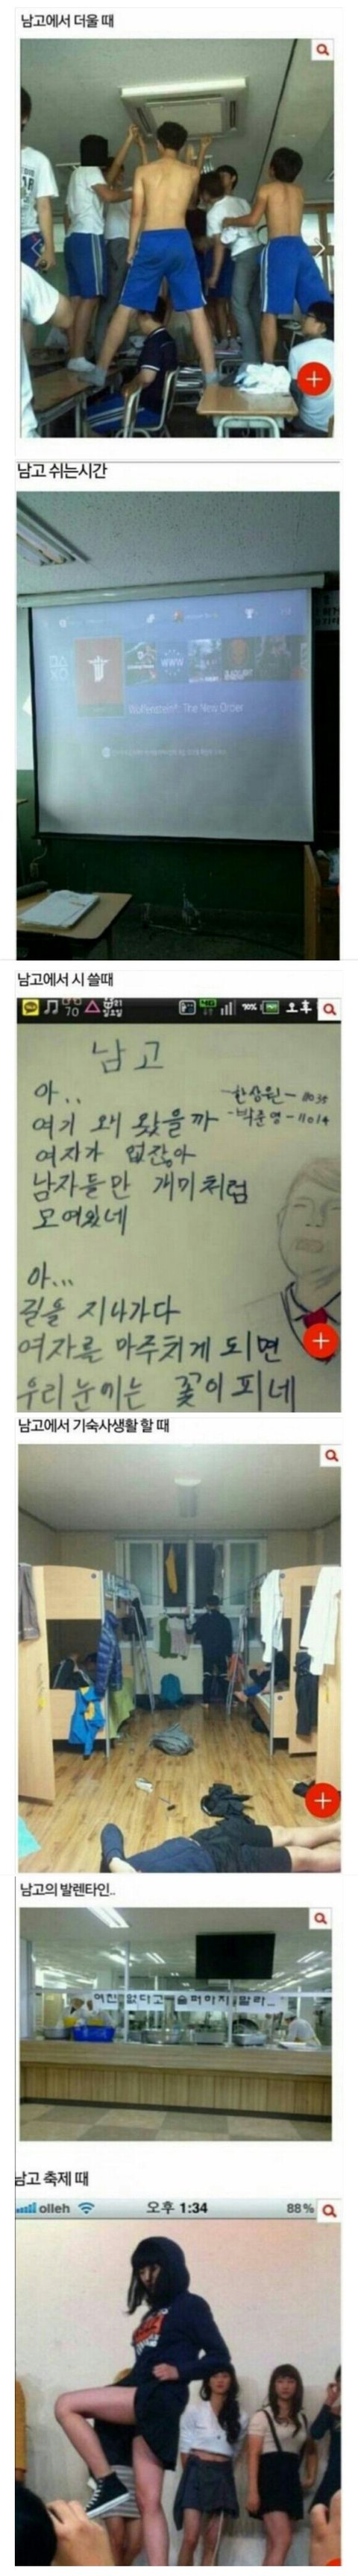 남고에서 더울 때
남고 쉬는시간
Wolfenstein®: The New Order
WWW
남고에서 시 쓸때
70
4G
90%
오후
남고
한상원 - 11035
박준영 - 11014
아..
여기 왜 왔을까
여자가 없잖아
남자들만 개미처럼
모여왔네
아...
길을 지나가다
여자를 마주치게 되면
우리눈에는 꽃이 피네
남고에서 기숙사생활 할 때
남고의 발렌타인..
여친 없다고 슬퍼하지 말라...
남고 축제 때
olleh
오후 1:34
88%